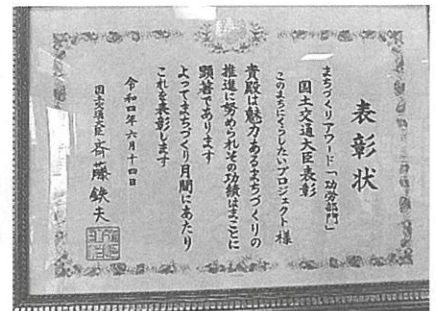 表彰状
まちづくりアワード「功労部門」
国土交通大臣表彰
このまちにくらしたいプロジェクト様
貴殿は魅力あるまちづくりの
推進に努められその功績はまことに
顕著であります
よってまちづくり月間にあたり
これを表彰します
令和四年六月十四日
国土交通大臣 斉藤鉄夫